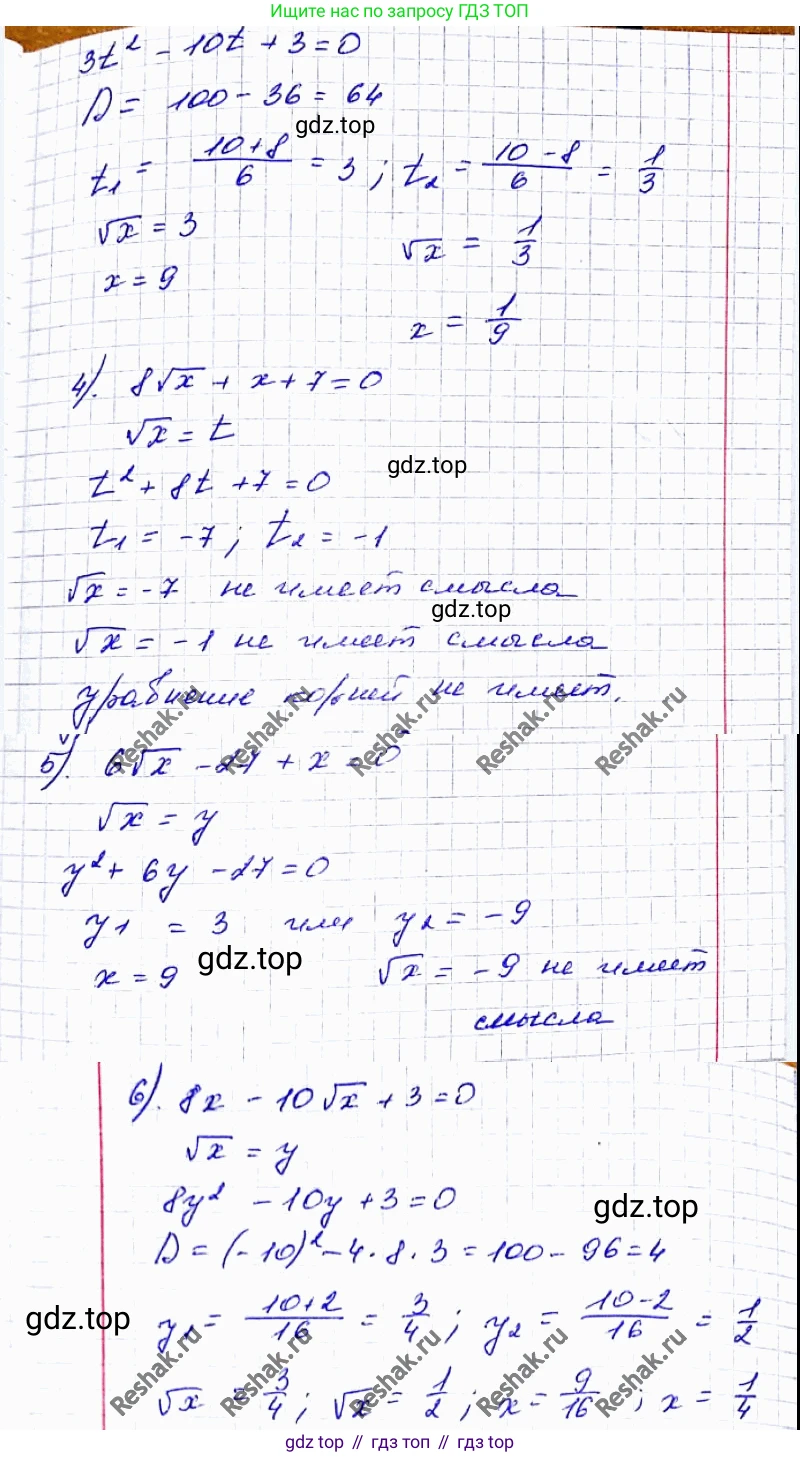 Ищите нас по запросу ГДЗ ТОП
3t² - 10t + 3 = 0
D = 100 - 36 = 64
gdz.top
t₁ = (10+8)/6 = 3 ; t₂ = (10-8)/6 = 1/3
√x = 3 √x = 1/3
x = 9 x = 1/9
4). 8√x + x + 7 = 0
√x = t
gdz.top
t² + 8t + 7 = 0
t₁ = -7 ; t₂ = -1
√x = -7 не имеет смысла
gdz.top
√x = -1 не имеет смысла
уравнение корней не имеет.
Reshak.ru Reshak.ru Reshak.ru Reshak.ru Reshak.ru
5). 6√x - 27 + x = 0
√x = y
y² + 6y - 27 = 0
y₁ = 3 или y₂ = -9
gdz.top
x = 9 √x = -9 не имеет
смысла
6). 8x - 10√x + 3 = 0
√x = y
8y² - 10y + 3 = 0
gdz.top
D = (-10)² - 4·8·3 = 100 - 96 = 4
gdz.top
y₁ = (10+2)/16 = 3/4 ; y₂ = (10-2)/16 = 1/2
Reshak.ru Reshak.ru Reshak.ru Reshak.ru Reshak.ru
√x = 3/4 ; √x = 1/2 ; x = 9/16 ; x = 1/4
gdz top // гдз топ // gdz top